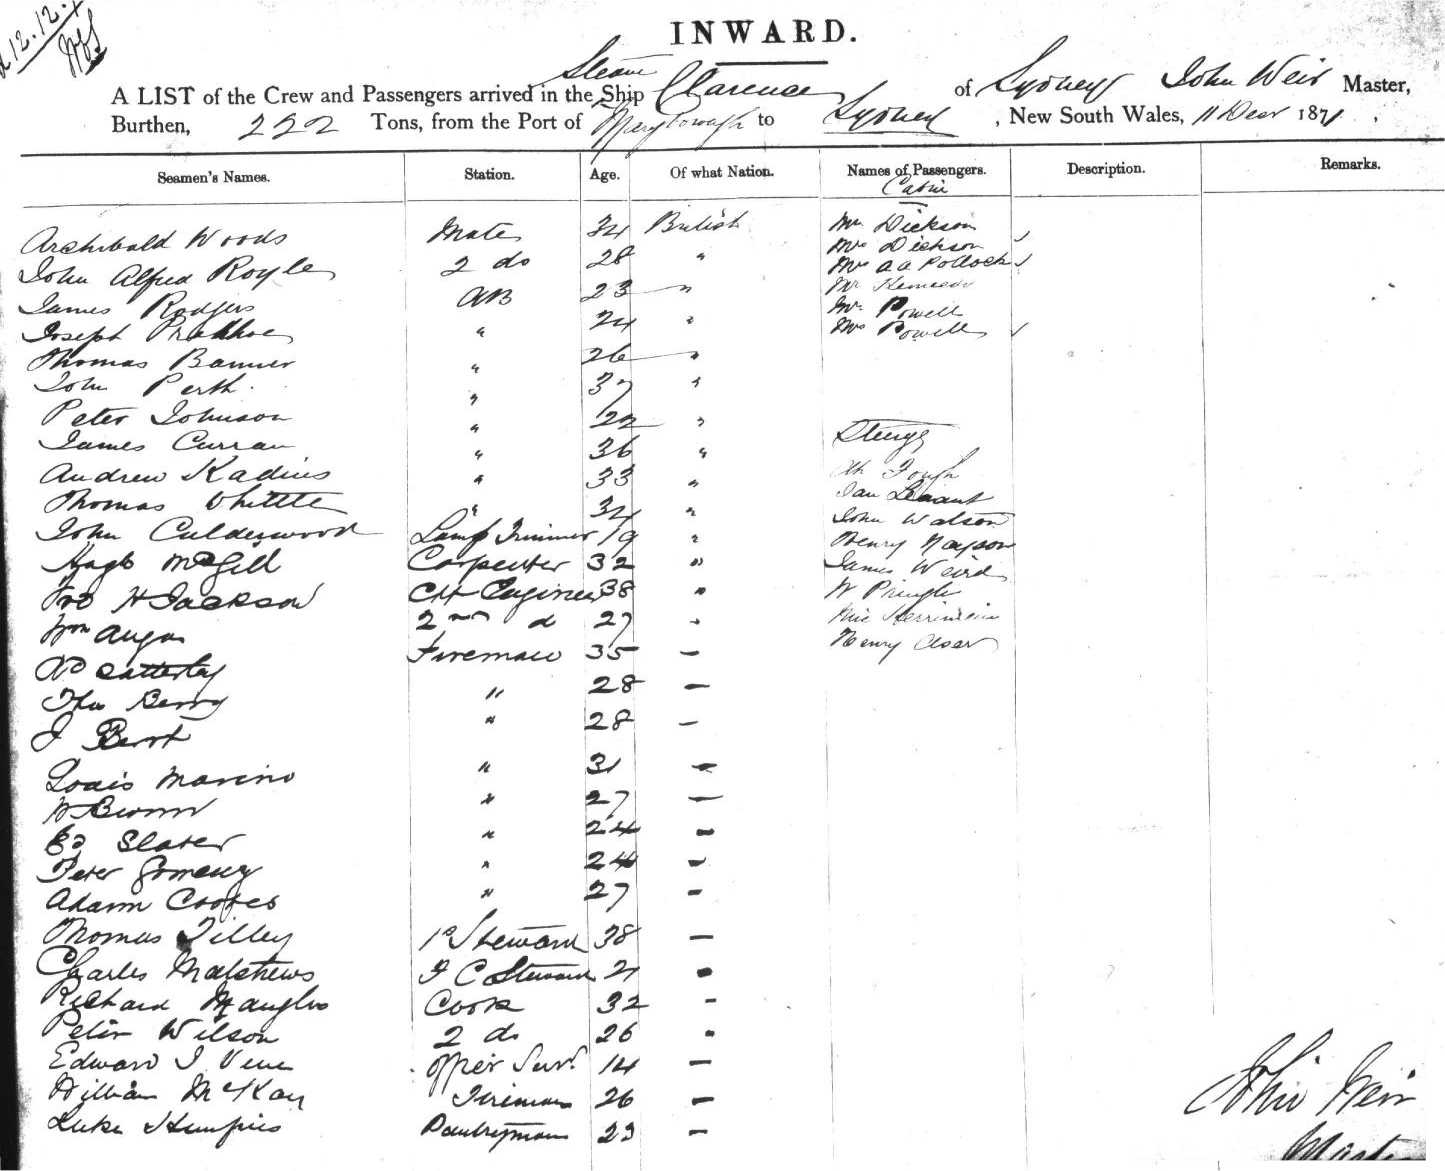 12.12.
INWARD.
A LIST of the Crew and Passengers arrived in the Steam Ship Clarence of Sydney John Weir Master,
Burthen, 222 Tons, from the Port of Maryborough to Sydney, New South Wales, 11 Decr 1871.
Seamen's Names. Station. Age. Of what Nation. Names of Passengers. Description. Remarks.
Cabin
Archibald Woods Mate 34 British Mr Dickson
Mrs Dickson
John Alfred Royle 2 do 28 " Mrs Pollock
James Rodgers AB 23 " Mr
Mr Powell
Joseph " 24 " Mrs Powell
Thomas " 26 "
John Perth " 37 "
Peter Johnson " 22 "
James Curran " 36 "
Andrew " 33 "
Thomas Whittle " 34 "
John Culderwood Lamp Trimmer 19 "
Hugh McGill Carpenter 32 "
H Jackson Ch Engineer 38 "
Wm Angus 2nd d 27 "
Satterley Fireman 35 –
Thos Berry " 28 –
J " 28 –
Louis Marino " 31 –
W Brown " 27 –
Ed Slater " 24 –
Peter " 24 –
Adam " 27 –
Thomas Tilley Steward 38 –
Charles Matthews Steward 21 –
Richard Cook 32 –
Peter Wilson 2 do 26 –
Edward J 14 –
William McKay Fireman 26 –
Luke Humpries Pantryman 23 –
Steerage
John Watson
Henry
James Weir
W Pringle
Henry
John Weir
Master